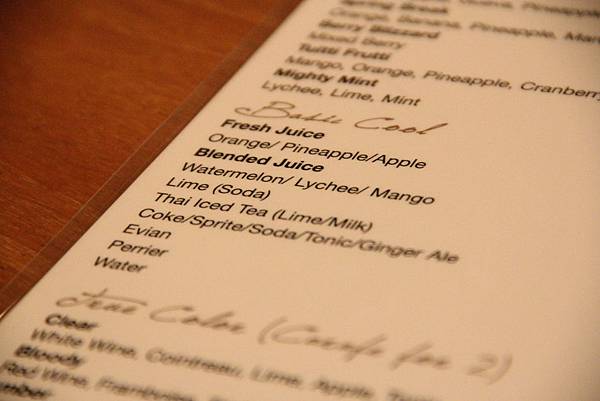 Spring Break
Orange, Banana, Pineapple,
Berry Blizzard
Mixed Berry
Tuitti Frutti
Mango, Orange, Pineapple, Cranberry
Mighty Mint
Lychee, Lime, Mint
Basic Cool
Fresh Juice
Orange/ Pineapple/Apple
Blended Juice
Watermelon/ Lychee/ Mango
Lime (Soda)
Thai Iced Tea (Lime/Milk)
Coke/Sprite/Soda/Tonic/Ginger Ale
Evian
Perrier
Water
True Color (Carafe for 2)
Clear
White Wine, Cointreau, Lime, Apple,
Bloody
Red Wine, Framboise,